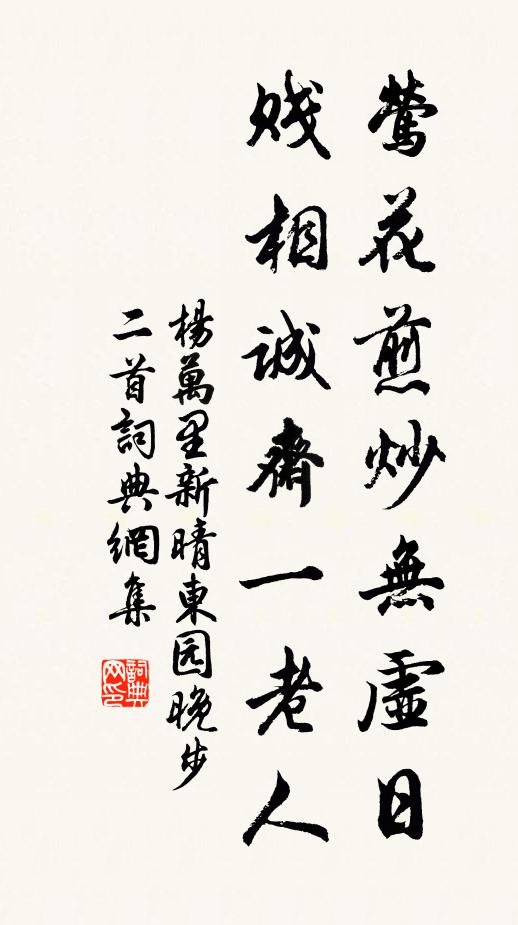 鶯花煎炒無虛日
賤相誠齋一老人
楊萬里新晴東园晚步
二首詞典網集
詞典
网印